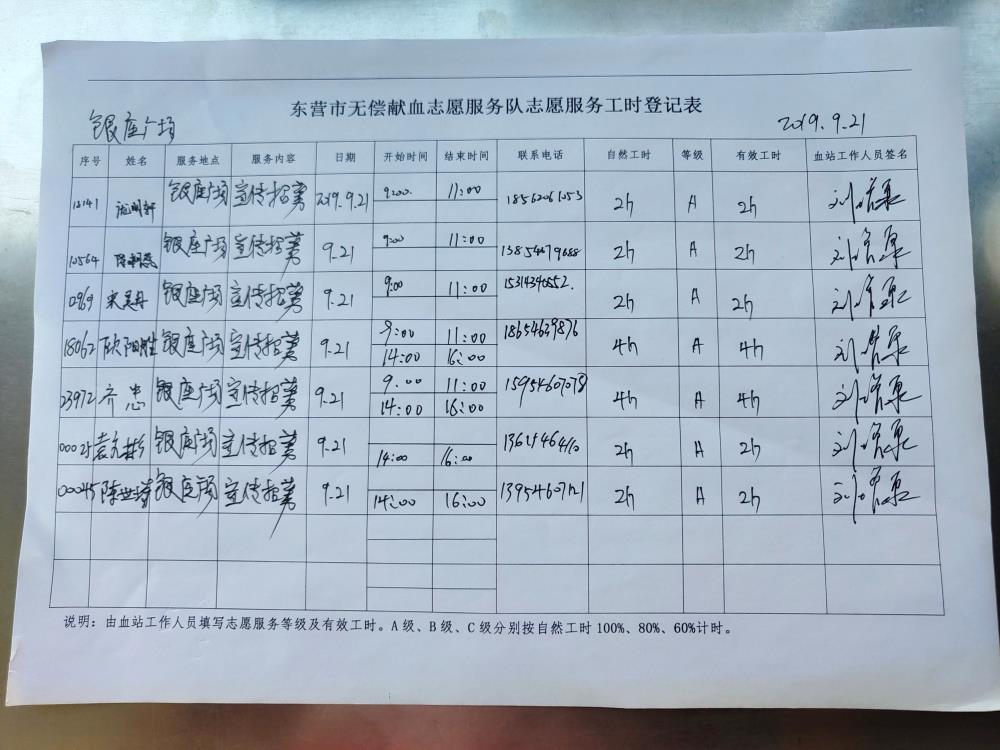 东营市无偿献血志愿服务队志愿服务工时登记表
银座广场 2019.9.21
序号 姓名 服务地点 服务内容 日期 开始时间 结束时间 联系电话 自然工时 等级 有效工时 血站工作人员签名
银座广场 宣传招募 2019.9.21 9:00 11:00 2h A 2h
10564 银座广场 宣传招募 9.21 9:00 11:00 13854679688 2h A 2h
银座广场 宣传招募 9.21 9:00 11:00 15314340552. 2h A 2h
18062 银座广场 宣传招募 9.21 9:00 11:00 18654639876 4h A 4h
14:00 16:00
23972 齐忠 银座广场 宣传招募 9.21 9.00 11:00 15954607078 4h A 4h
14:00 16:00
00025 银座广场 宣传招募 9.21 14:00 16:00 2h A 2h
00045 银座广场 宣传招募 9.21 14:00 16:00 2h A 2h
说明：由血站工作人员填写志愿服务等级及有效工时。A级、B级、C级分别按自然工时100%、80%、60%计时。